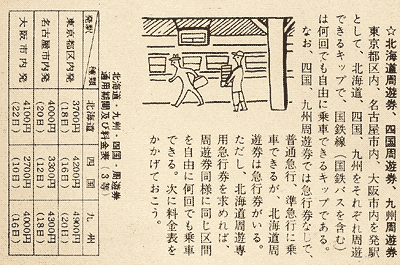 ☆北海道周遊券、四国周遊券、九州周遊券
東京都区内、名古屋市内、大阪市内を発駅
として、北海道、四国、九州をそれぞれ周遊
できるキップで、国鉄線(国鉄バスを含む)
は何回でも自由に乗車できるキップである。
なお、四国、九州周遊券では急行券なしで、
普通急行、準急行に乗
車できるが、北海道周
遊券は急行券がいる。
ただし、北海道周遊専
用急行券を求めれば、
周遊券同様に同じ区間
を自由に何回でも乗車
できる。次に料金表を
かかげておこう。
北海道・九州・四国・周遊券
適用期間及び料金表(3等)
発駅 種類 北海道 四国 九州
東京都区内発 3700円 4200円 4900円
(18日) (16日) (20日)
名古屋市内発 4000円 3300円 4300円
(20日) (12日) (18日)
大阪市内発 4100円 2700円 4000円
(22日) (10日) (16日)